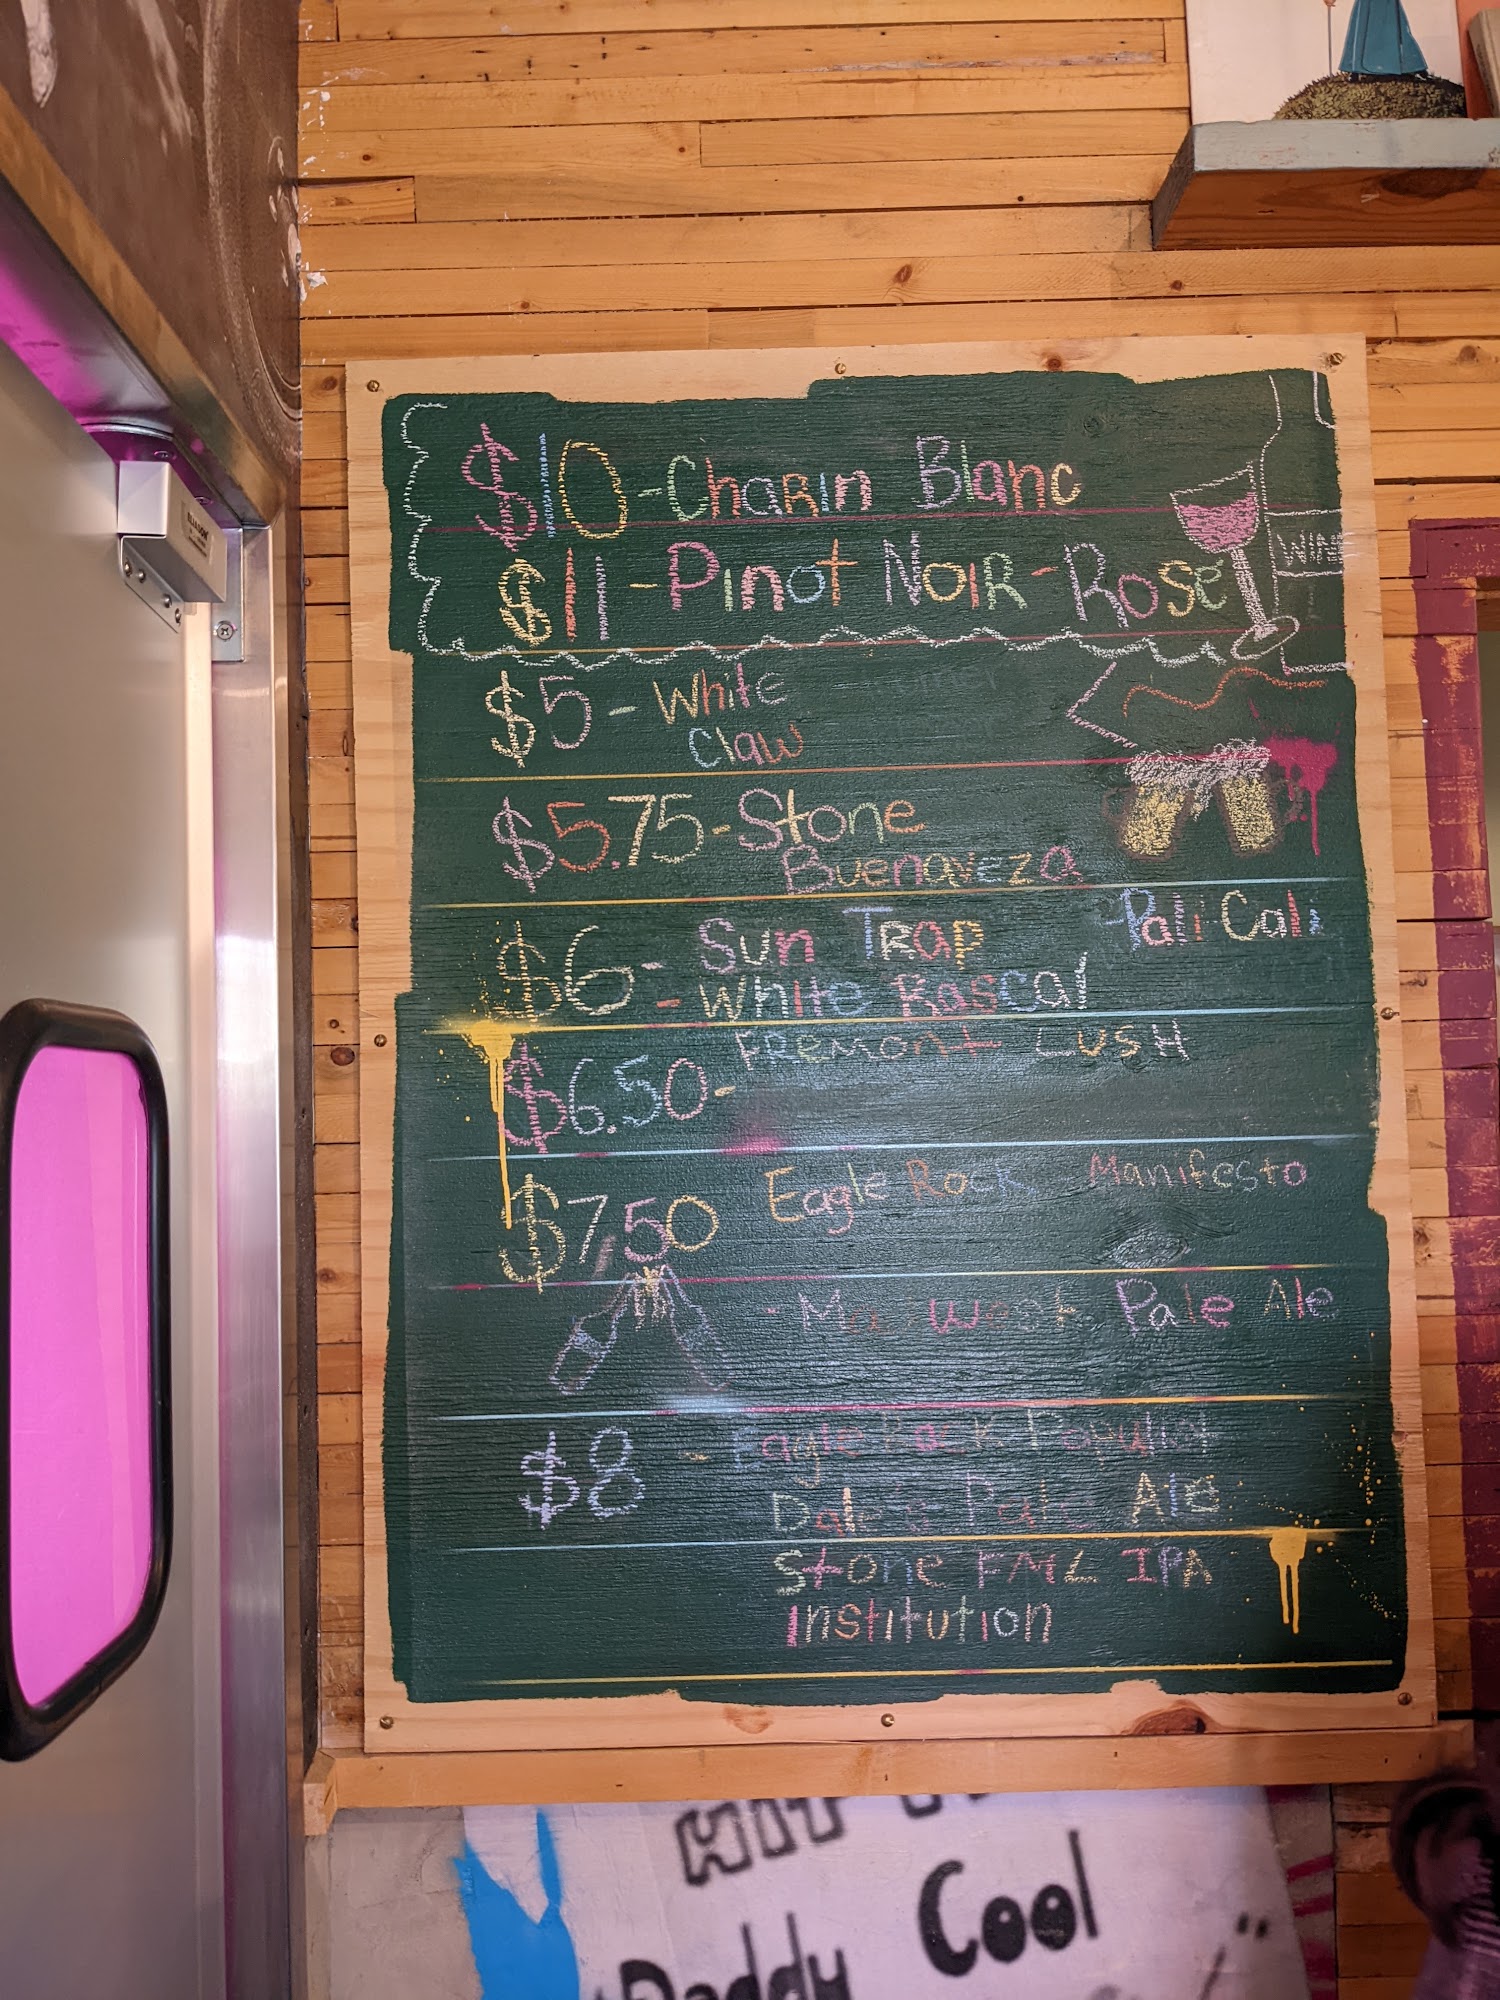 $10 - Charin Blanc
$11 - Pinot Noir - Rosé
WINE
$5 - White
Claw
$5.75 - Stone
Buenaveza
$6 - Sun Trap - Pali Cali
- White Rascal
Fremont Lush
$6.50 -
Eagle Rock Manifesto
$7.50
- Pale Ale
$8 - Eagle Rock Populist
Dale's Pale Ale
Stone FML IPA
institution
Daddy Cool